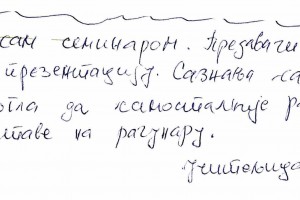 сам семинаром. Предавачи
презентацију. Сазнања са
да самостално
на рачунару.
Учитељица